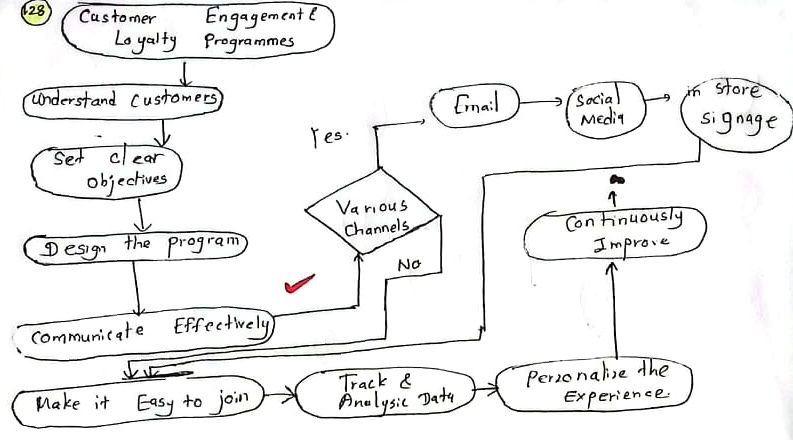 128
Customer Engagement &
Loyalty Programmes
Understand Customers
Set clear
Objectives
Design the program
Communicate Effectively
Various
Channels
Yes.
No
Email
Social
Media
in store
signage
Make it Easy to join
Track &
Analysic Data
Personalise the
Experience.
Continuously
Improve